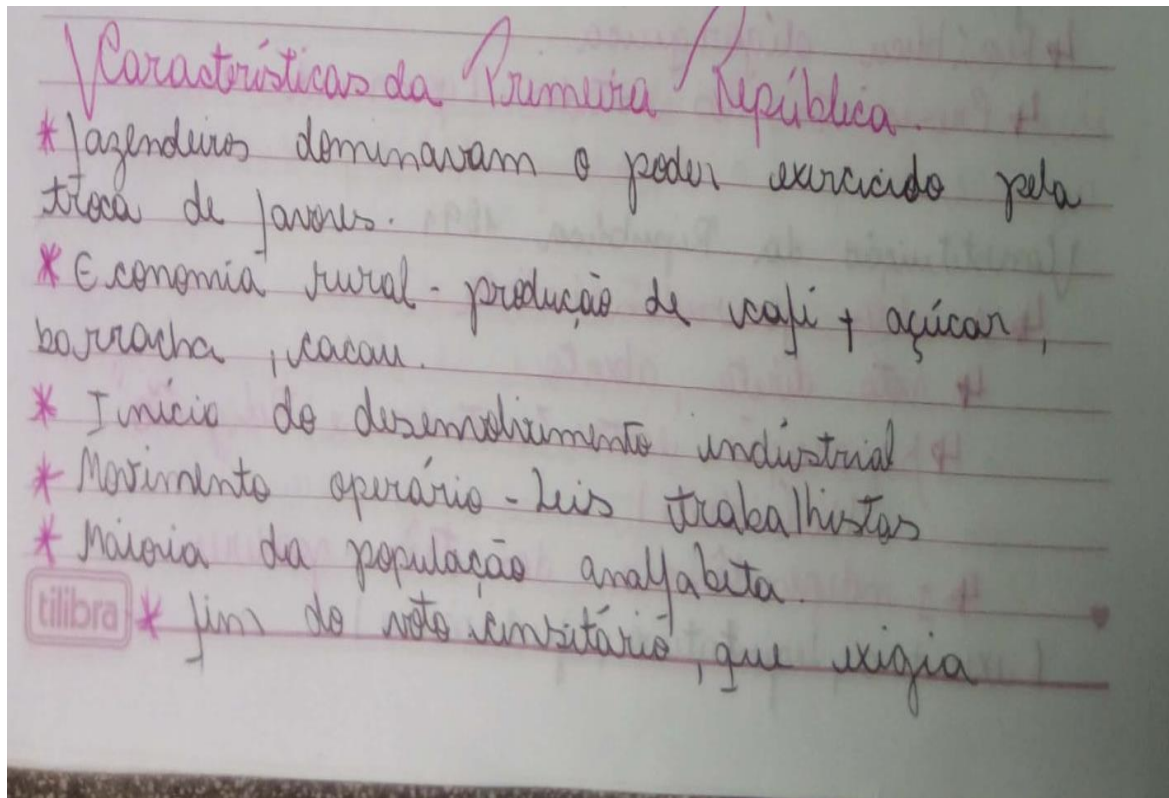 Características da Primeira República.
* fazendeiros dominavam o poder exercicido pela
troca de favores.
* Economia rural - produção de café + açúcar,
borracha, cacau.
* Início do desenvolvimento indústrial
* Movimento operário - Leis trabalhistas
* Maioria da população analfabeta.
tilibra * fim do voto censitário, que exigia